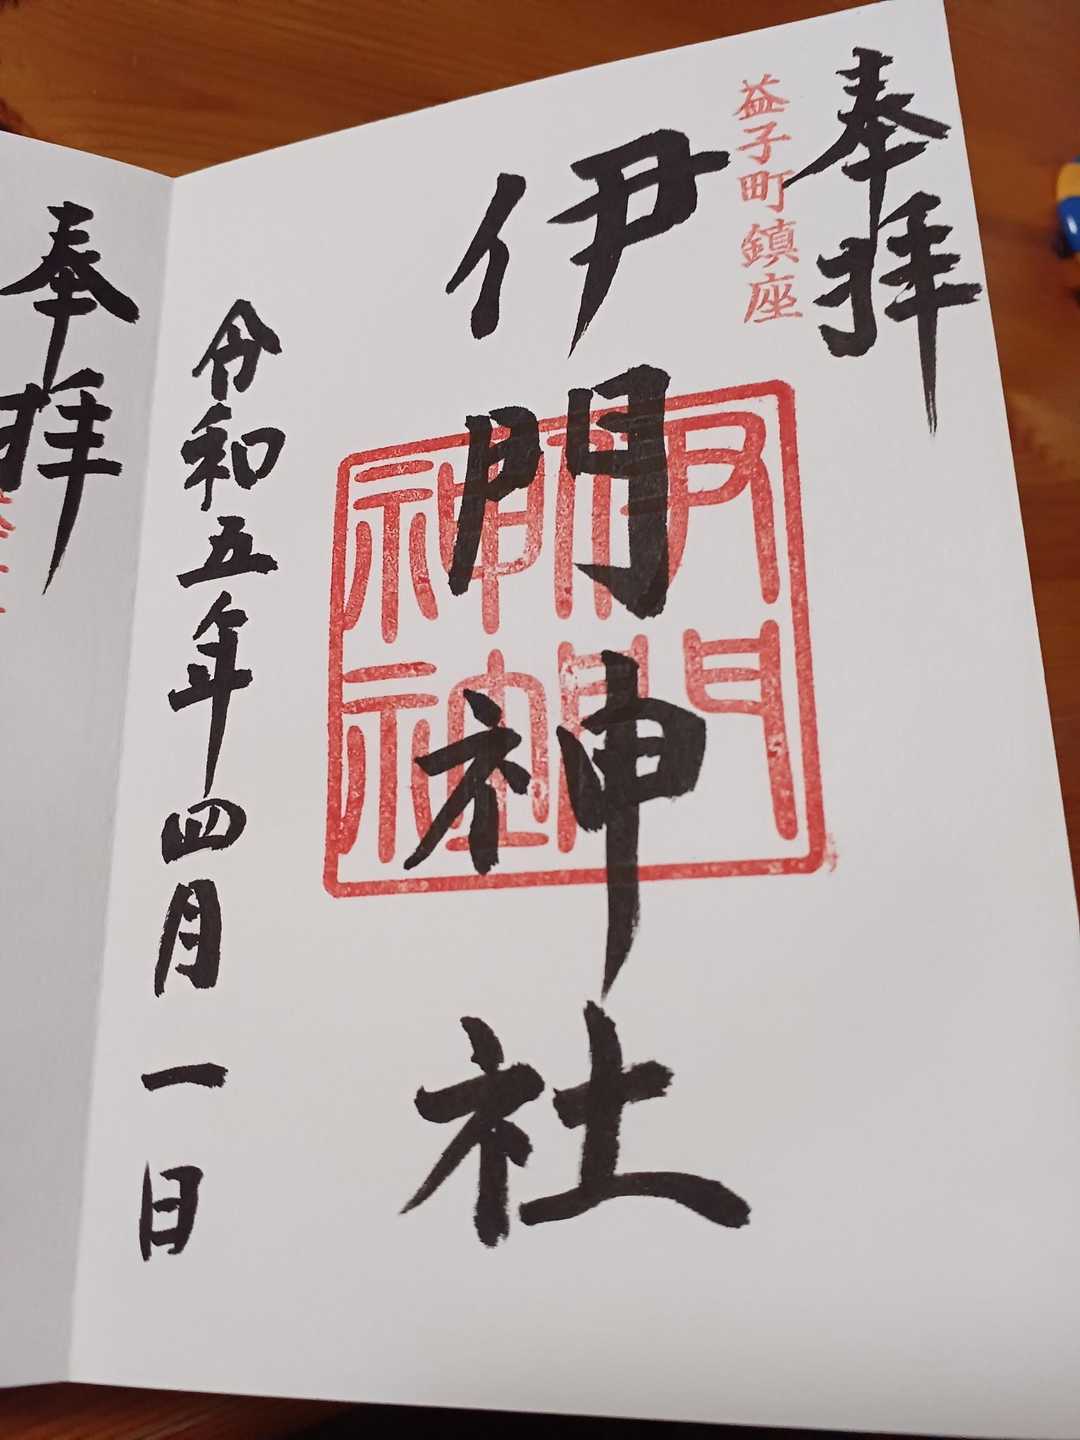 奉拝
益子町鎮座
伊門神社
伊門神社
令和五年四月一日
奉拝